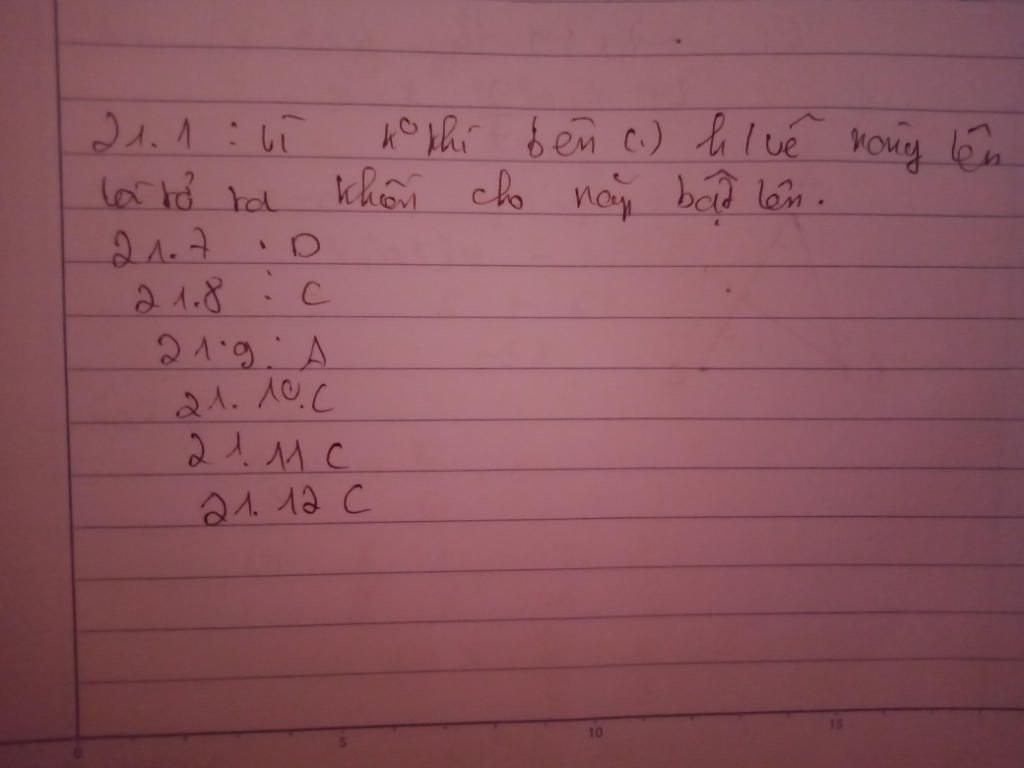 21.1 : Vì kº khí bên (.) h/vẽ nóng lên
và nở ra khiến cho nắp bật lên.
21.7 : D
21.8 : C
21.9 : A
21.10. C
21.11 C
21.12 C
0 5 10 15